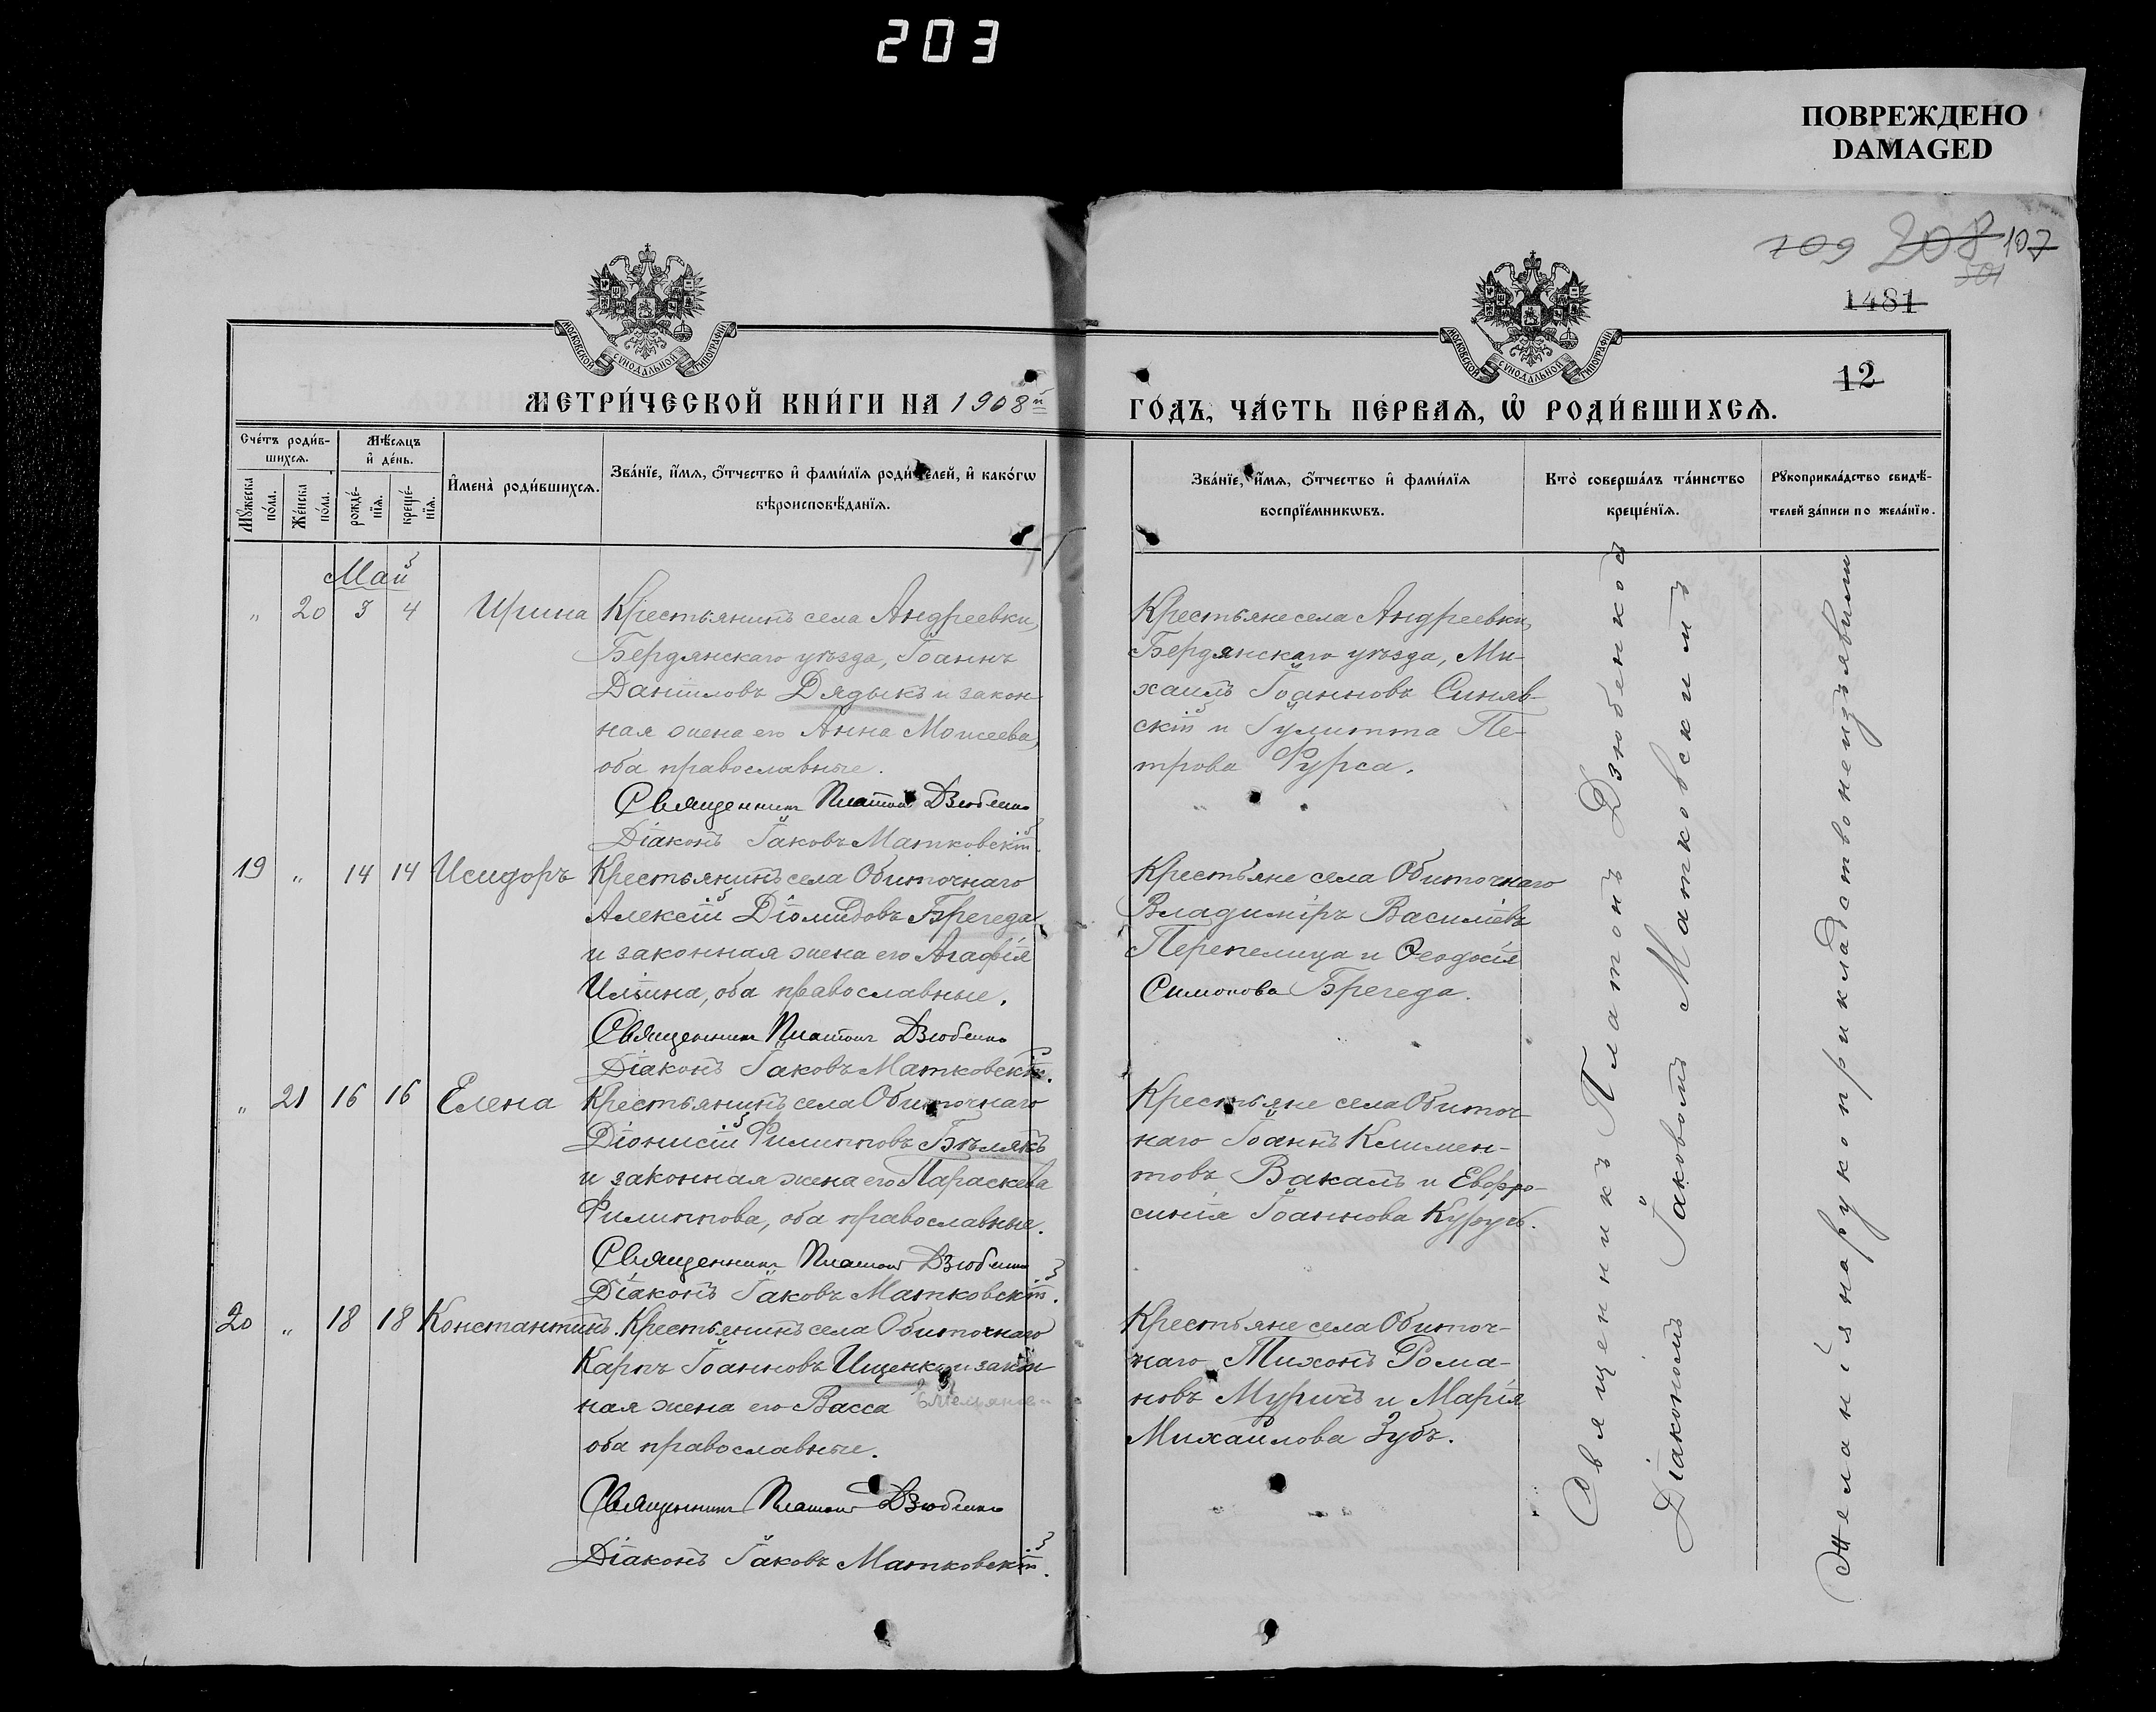 203
ПОВРЕЖДЕНО
DAMAGED
109 208 107
501
1481
12
МОСКОВСКОЙ СѴНОДАЛЬНОЙ ТИПОГРАФІИ
МОСКОВСКОЙ СѴНОДАЛЬНОЙ ТИПОГРАФІИ
МЕТРИ́ЧЕСКОЙ КНИ́ГИ НА 1908й
ГО́ДЪ, ЧА́СТЬ ПЕ́РВАѦ, Ѡ҆ РОДИ́ВШИХСѦ.
Сче́тъ роди́в-
шихсѧ.
Мѣ́сѧцъ
и҆ де́нь.
Мꙋ́жеска по́ла.
Же́нска по́ла.
рожде́-нїѧ.
креще́-нїѧ.
И҆мена̀ роди́вшихсѧ.
Зва́нїе, и҆́мѧ, ѻ҆́тчество и҆ фами́лїѧ роди́телей, и҆ како́гѡ
вѣроисповѣ́данїѧ.
Зва́нїе, и҆́мѧ, ѻ҆́тчество и҆ фами́лїѧ
воспрїе́мникѡвъ.
Кто̀ соверша́лъ та́инство
креще́нїѧ.
Рꙋкоприкла́дство свидѣ́-
телей за́писи по жела́нїю.
Май
" 20 3 4 Ирина Крестьянинъ села Андреевки,
Бердянскаго уѣзда, Іоаннъ
Даніиловъ Дядыкъ и закон-
ная жена его Анна Моисеева,
оба православные.
Священникъ Платонъ Дзюбенко
Діаконъ Іаковъ Матковскій.
Крестьяне села Андреевки,
Бердянскаго уѣзда, Ми-
хаилъ Іоанновъ Синяв-
скій и Іулитта Пе-
трова Фурса.
19 " 14 14 Исидоръ Крестьянинъ села Обиточнаго
Алексій Діомидовъ Брегеда
и законная жена его Агафія
Ильина, оба православные.
Священникъ Платонъ Дзюбенко
Діаконъ Іаковъ Матковскій.
Крестьяне села Обиточнаго
Владиміръ Василіевъ
Перепелица и Ѳеодосія
Симонова Брегеда.
" 21 16 16 Елена Крестьянинъ села Обиточнаго
Діонисій Филипповъ Бѣлякъ
и законная жена его Параскева
Филиппова, оба православные.
Священникъ Платонъ Дзюбенко
Діаконъ Іаковъ Матковскій.
Крестьяне села Обиточ-
наго Іоаннъ Климен-
товъ Вакалъ и Евфро-
синія Іоаннова Курусь.
20 " 18 18 Константинъ. Крестьянинъ села Обиточнаго
Карпъ Іоанновъ Ищенко и закон-
ная жена его Васса Емельянова
оба православные.
Священникъ Платонъ Дзюбенко
Діаконъ Іаковъ Матковскій.
Крестьяне села Обиточ-
наго Тихонъ Рома-
новъ Муричъ и Марія
Михайлова Зубъ.
Священникъ Платонъ Дзюбенко съ
Діакономъ Іаковомъ Матковскимъ
Желанія на рукоприкладство не изъявили